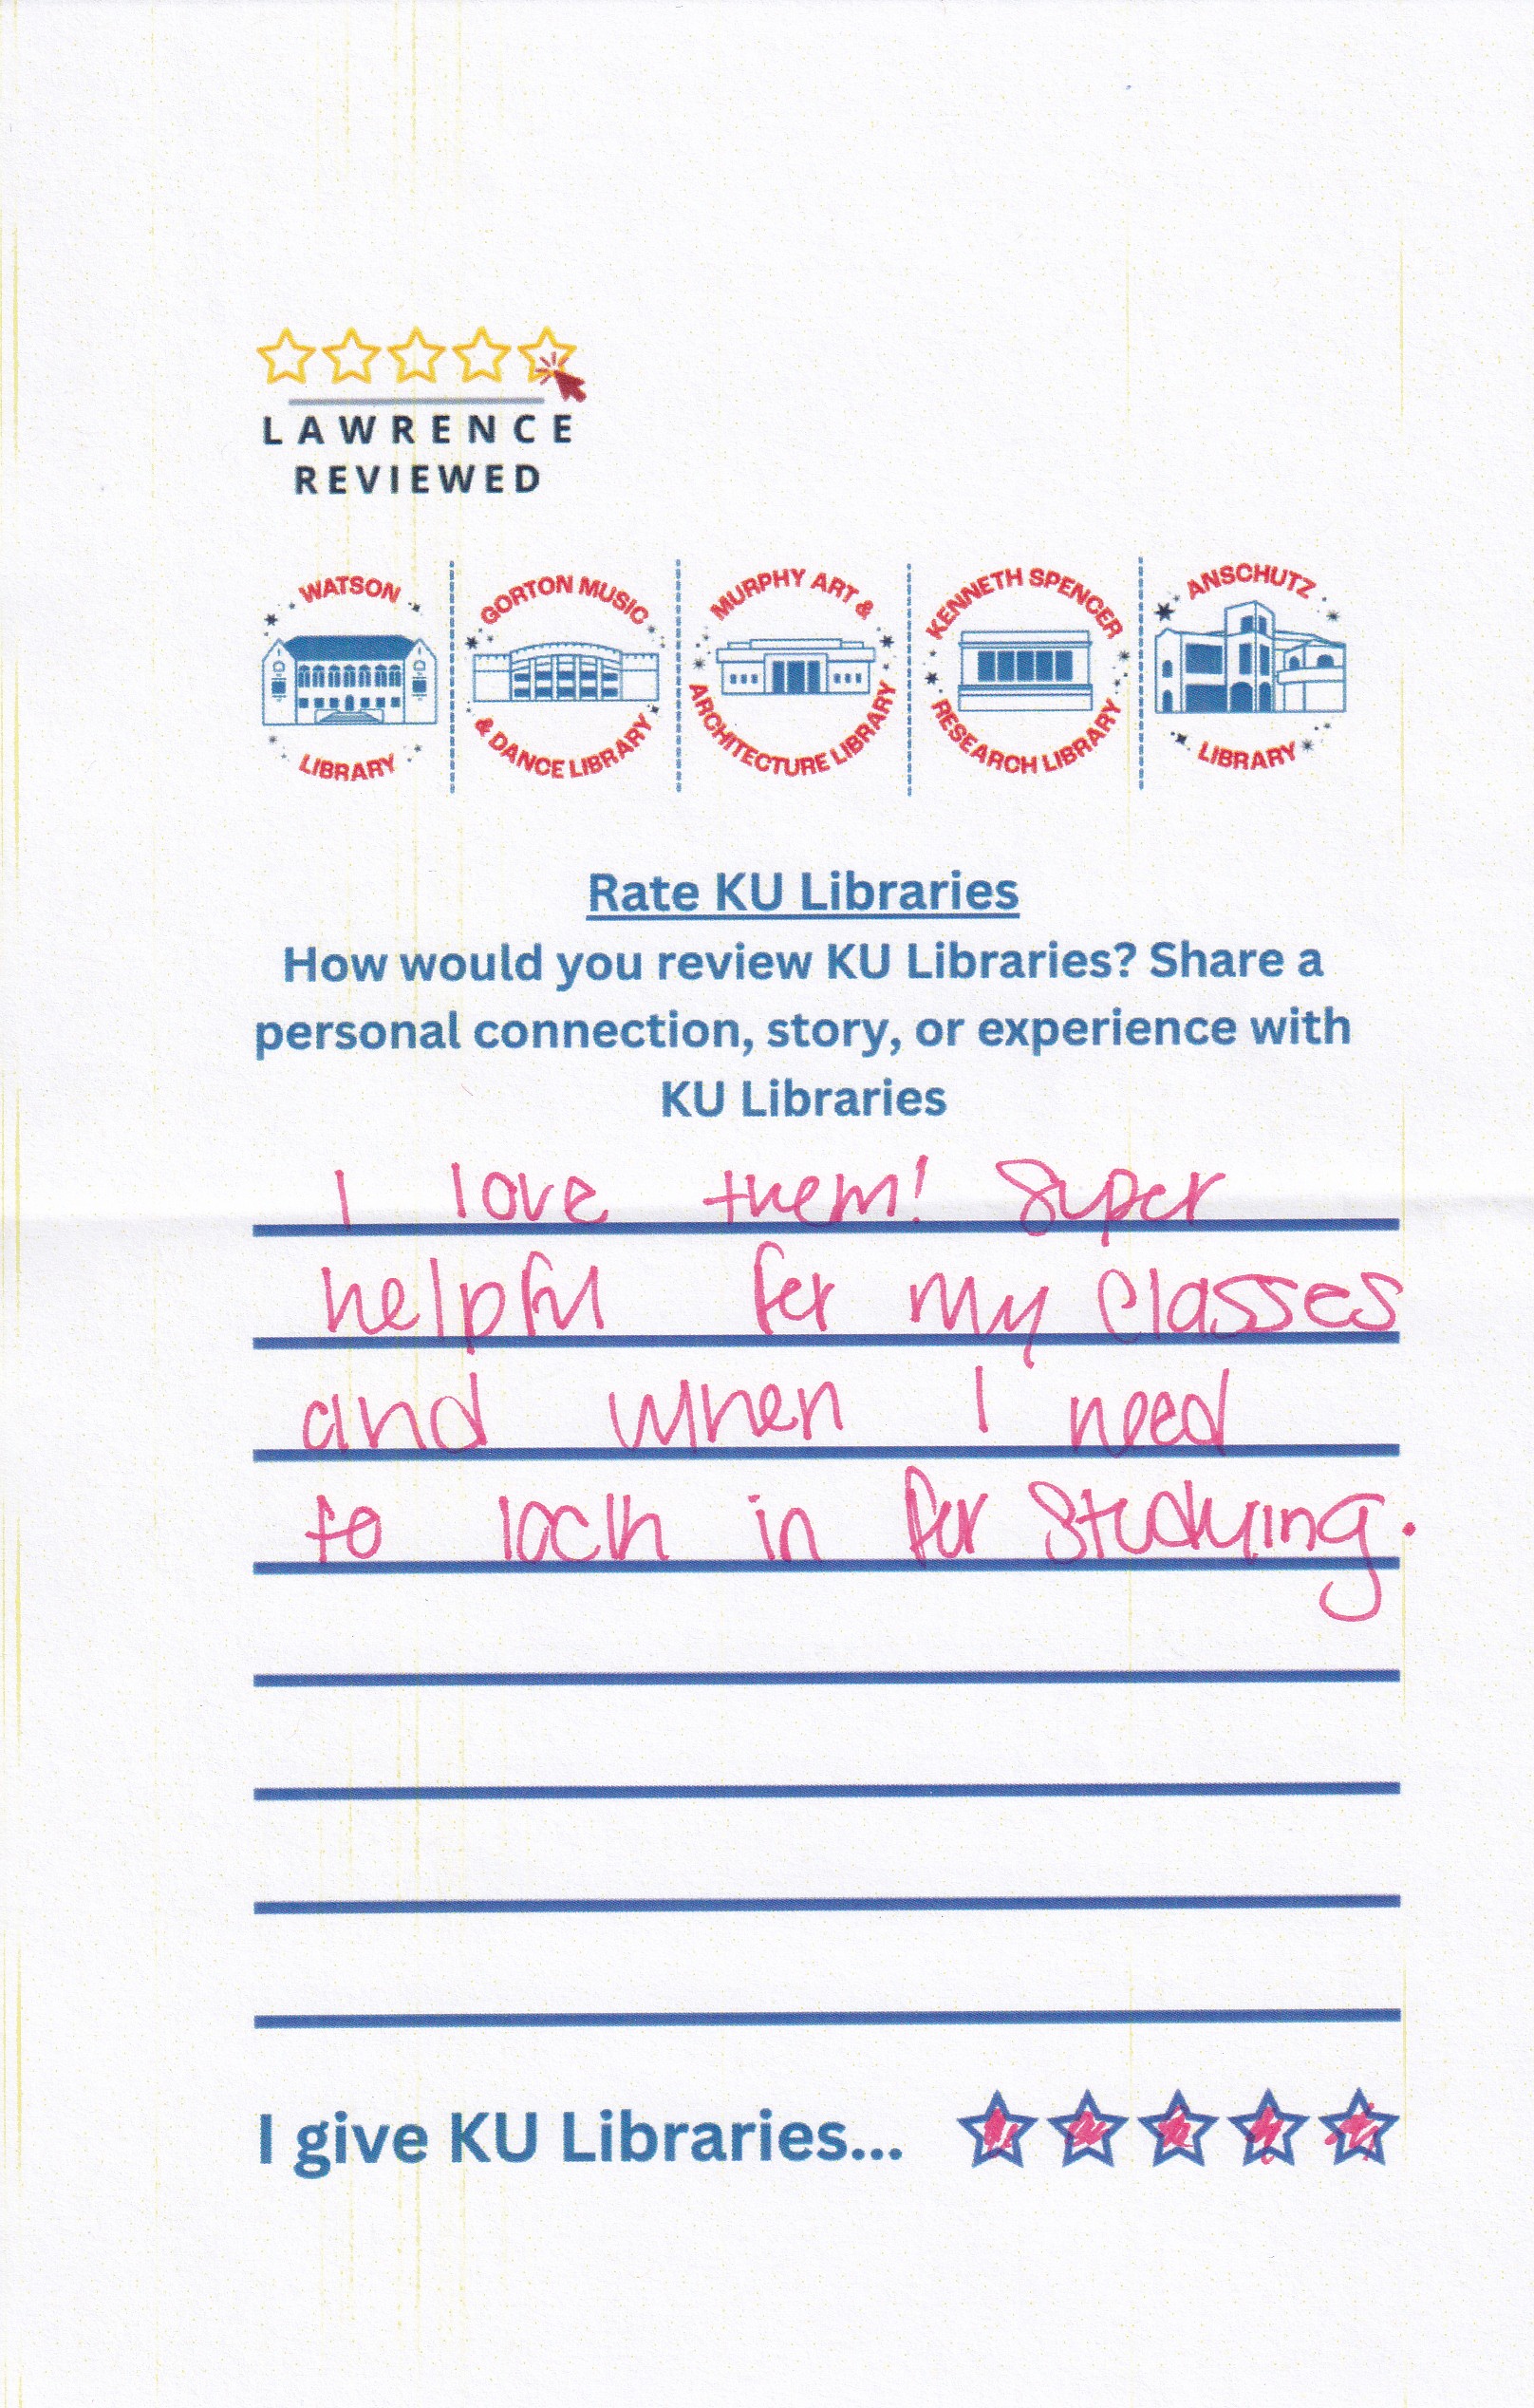 LAWRENCE
REVIEWED
WATSON LIBRARY
GORTON MUSIC & DANCE LIBRARY
MURPHY ART & ARCHITECTURE LIBRARY
KENNETH SPENCER RESEARCH LIBRARY
ANSCHUTZ LIBRARY
Rate KU Libraries
How would you review KU Libraries? Share a
personal connection, story, or experience with
KU Libraries
I love them! Super
helpful for my classes
and when I need
to lock in for studying.
I give KU Libraries...